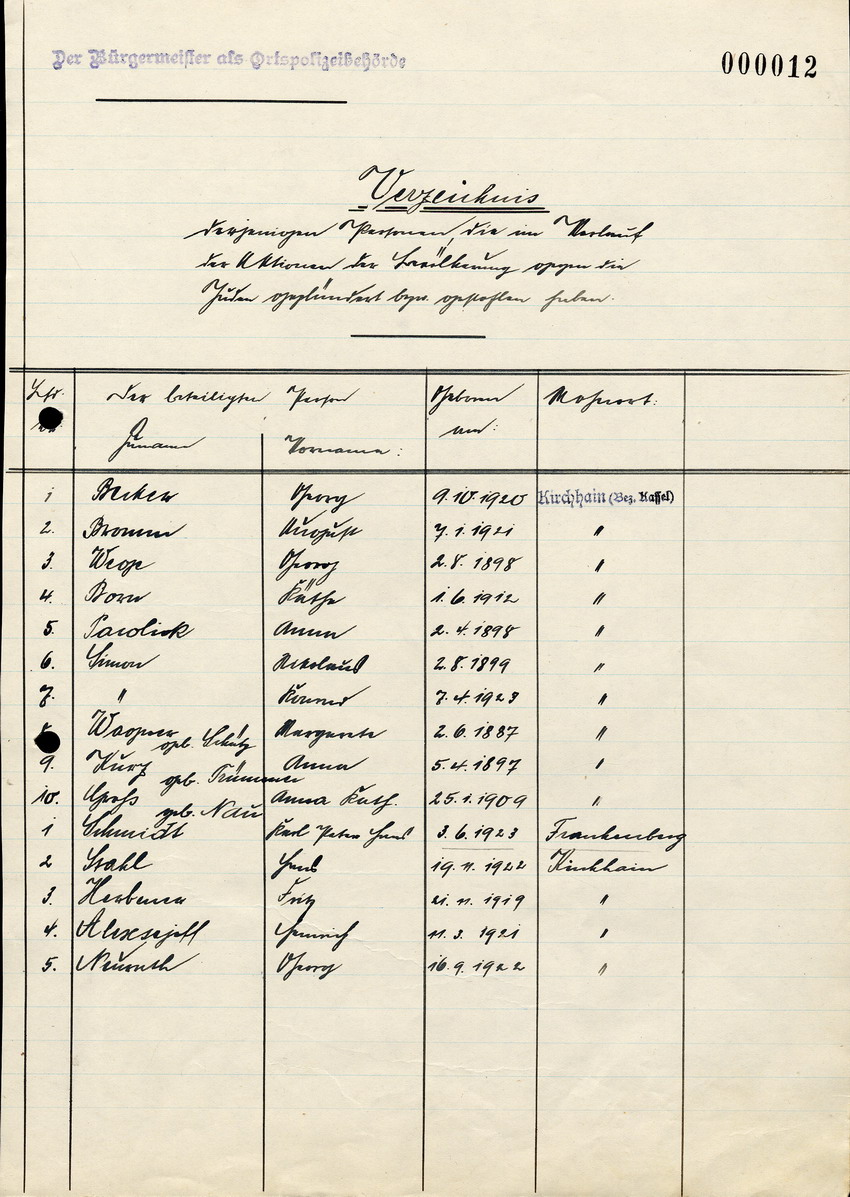 Der Bürgermeister als Ortspolizeibehörde
000012
Verzeichnis
derjenigen Personen, die im Verlauf
der Aktionen der Bevölkerung gegen die
Juden geplündert bzw. gestohlen haben.
Lfd. Der beteiligten Person Geboren Wohnort:
Zuname Vorname: am:
1 Becker Georg 9.10.1920 Kirchhain (Bez. Kassel)
2. Bromm August 7.1.1921 "
3. Wege Georg 2.8.1898 "
4. Born Käthe 1.6.1912 "
5. Pawlick Anna 2.4.1898 "
6. Simon Nikolaus 2.8.1899 "
7. " Konrad 7.4.1923 "
Wagner geb. Schütz Margarete 2.6.1887 "
9. Kurz geb. Trümmner Anna 5.4.1897 "
10. Groß geb. Nau Anna Kath. 25.1.1909 "
1 Schmidt Karl Peter Hans 3.6.1923 Frankenberg
2 Stahl Hans 19.11.1922 Kirchhain
3. Herbener Fritz 21.11.1919 "
4. Heinrich 11.3.1921 "
5. Neurath Georg 16.9.1922 "